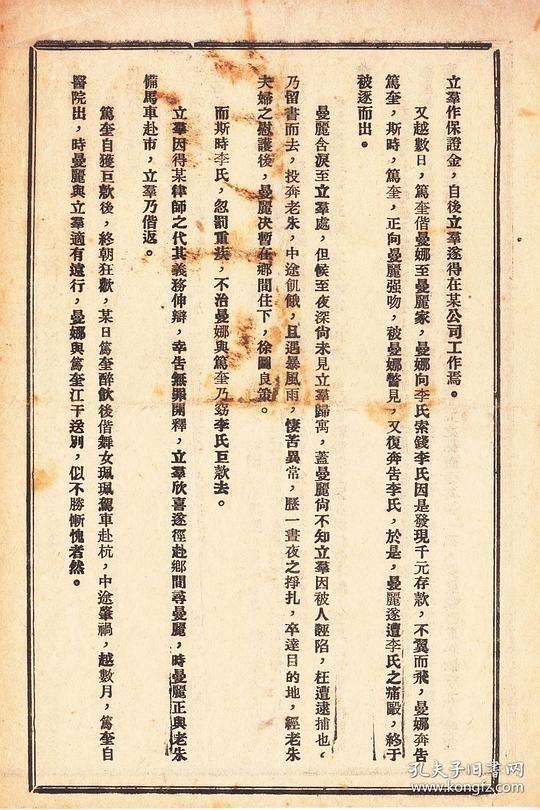 立羣作保證金，自後立羣遂得在某公司工作焉。
又越數日，篤奎偕曼娜至曼麗家，曼娜向李氏索錢李氏因是發現千元存款，不翼而飛，曼娜奔告
篤奎，斯時，篤奎，正向曼麗强吻，被曼娜瞥見，又復奔告李氏，於是，曼麗遂遭李氏之痛毆，終于
被逐而出。
曼麗含淚至立羣處，但候至夜深尙未見立羣歸寓，蓋曼麗尙不知立羣因被人誣陷，枉遭逮捕也，
乃留書而去，投奔老朱，中途飢餓，且遇暴風雨，悽苦異常，歷一晝夜之掙扎，卒達目的地，經老朱
夫婦之慰護後，曼麗決暫在鄉間住下，徐圖良策。
而斯時李氏，忽罹重疾，不治曼娜與篤奎乃竊李氏巨款去。
立羣因得某律師之代其義務伸辯，幸告無罪開釋，立羣欣喜遂徑赴鄉間尋曼麗，時曼麗正與老朱
備馬車赴市，立羣乃偕返。
篤奎自獲巨款後，終朝狂歡，某日篤奎醉飲後偕舞女珮珮駕車赴杭，中途肇禍，越數月，篤奎自
醫院出，時曼麗與立羣適有遠行，曼娜與篤奎江干送別，似不勝慚愧者然。
孔夫子旧书网
kongfz.com